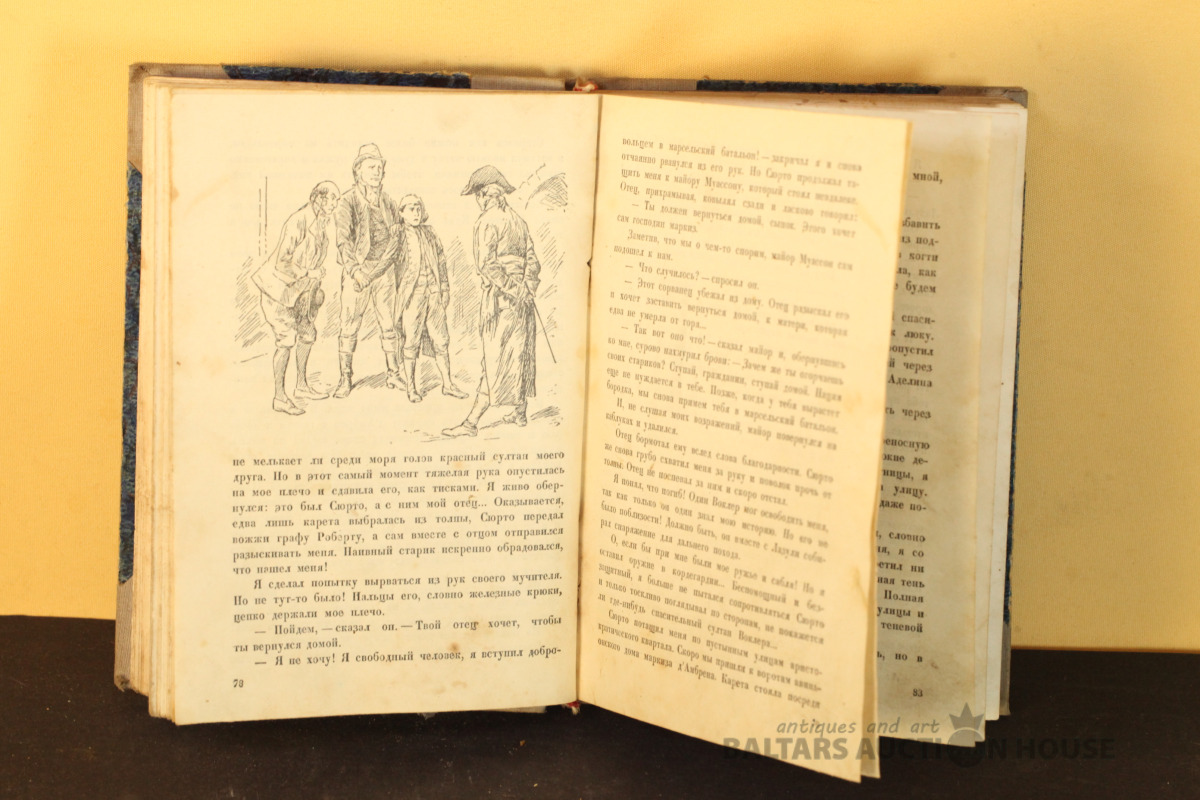 не мелькает ли среди моря голов красный султан моего
друга. Но в этот самый момент тяжелая рука опустилась
на мое плечо и сдавила его, как тисками. Я живо обер-
нулся: это был Сюрто, а с ним мой отец... Оказывается,
едва лишь карета выбралась из толпы, Сюрто передал
вожжи графу Роберту, а сам вместе с отцом отправился
разыскивать меня. Наивный старик искренно обрадовался,
что нашел меня!
Я сделал попытку вырваться из рук своего мучителя.
Но не тут-то было! Пальцы его, словно железные крюки,
цепко держали мое плечо.
— Пойдем, — сказал он. — Твой отец хочет, чтобы
ты вернулся домой.
— Я не хочу! Я свободный человек, я вступил добро-
78
вольцем в марсельский батальон! — закричал я и снова
отчаянно рванулся из его рук. Но Сюрто продолжал та-
щить меня к майору Муассону, который стоял невдалеке.
Отец, прихрамывая, ковылял сзади и ласково говорил:
— Ты должен вернуться домой, сынок. Этого хочет
сам господин маркиз.
Заметив, что мы о чем-то спорим, майор Муассон сам
подошел к нам.
— Что случилось? — спросил он.
— Этот сорванец убежал из дому. Отец разыскал его
и хочет заставить вернуться домой, к матери, которая
едва не умерла от горя...
— Так вот оно что! — сказал майор и, обернувшись
ко мне, сурово нахмурил брови: — Зачем же ты огорчаешь
своих стариков? Ступай, гражданин, ступай домой. Нация
еще не нуждается в тебе. Позже, когда у тебя вырастет
бородка, мы снова примем тебя в марсельский батальон.
И, не слушая моих возражений, майор повернулся на
каблуках и удалился.
Отец бормотал ему вслед слова благодарности. Сюрто
же снова грубо схватил меня за руку и поволок прочь от
толпы. Отец не поспевал за ним и скоро отстал.
Я понял, что погиб! Один Воклер мог освободить меня,
так как только он один знал мою историю. Но его не
было поблизости! Должно быть, он вместе с Лазули соби-
рал снаряжение для дальнего похода.
О, если бы при мне были мое ружье и сабля! Но я
оставил оружие в кордегардии... Беспомощный и без-
защитный, я больше не пытался сопротивляться Сюрто
и только тоскливо поглядывал по сторонам, не покажется
ли где-нибудь спасительный султан Воклера...
Сюрто потащил меня по пустынным улицам аристо-
кратического квартала. Скоро мы пришли к воротам авинь-
онского дома маркиза д'Амбрена. Карета стояла посреди
мной,
из под-
когти
ла, как
будем
спаси-
к люку.
через
Аделина
через
улицу.
даже по-
словно
я со
ная тень
Полная
улицы и
теневой
но в
83
antiques and art
BALTARS AUCTION HOUSE